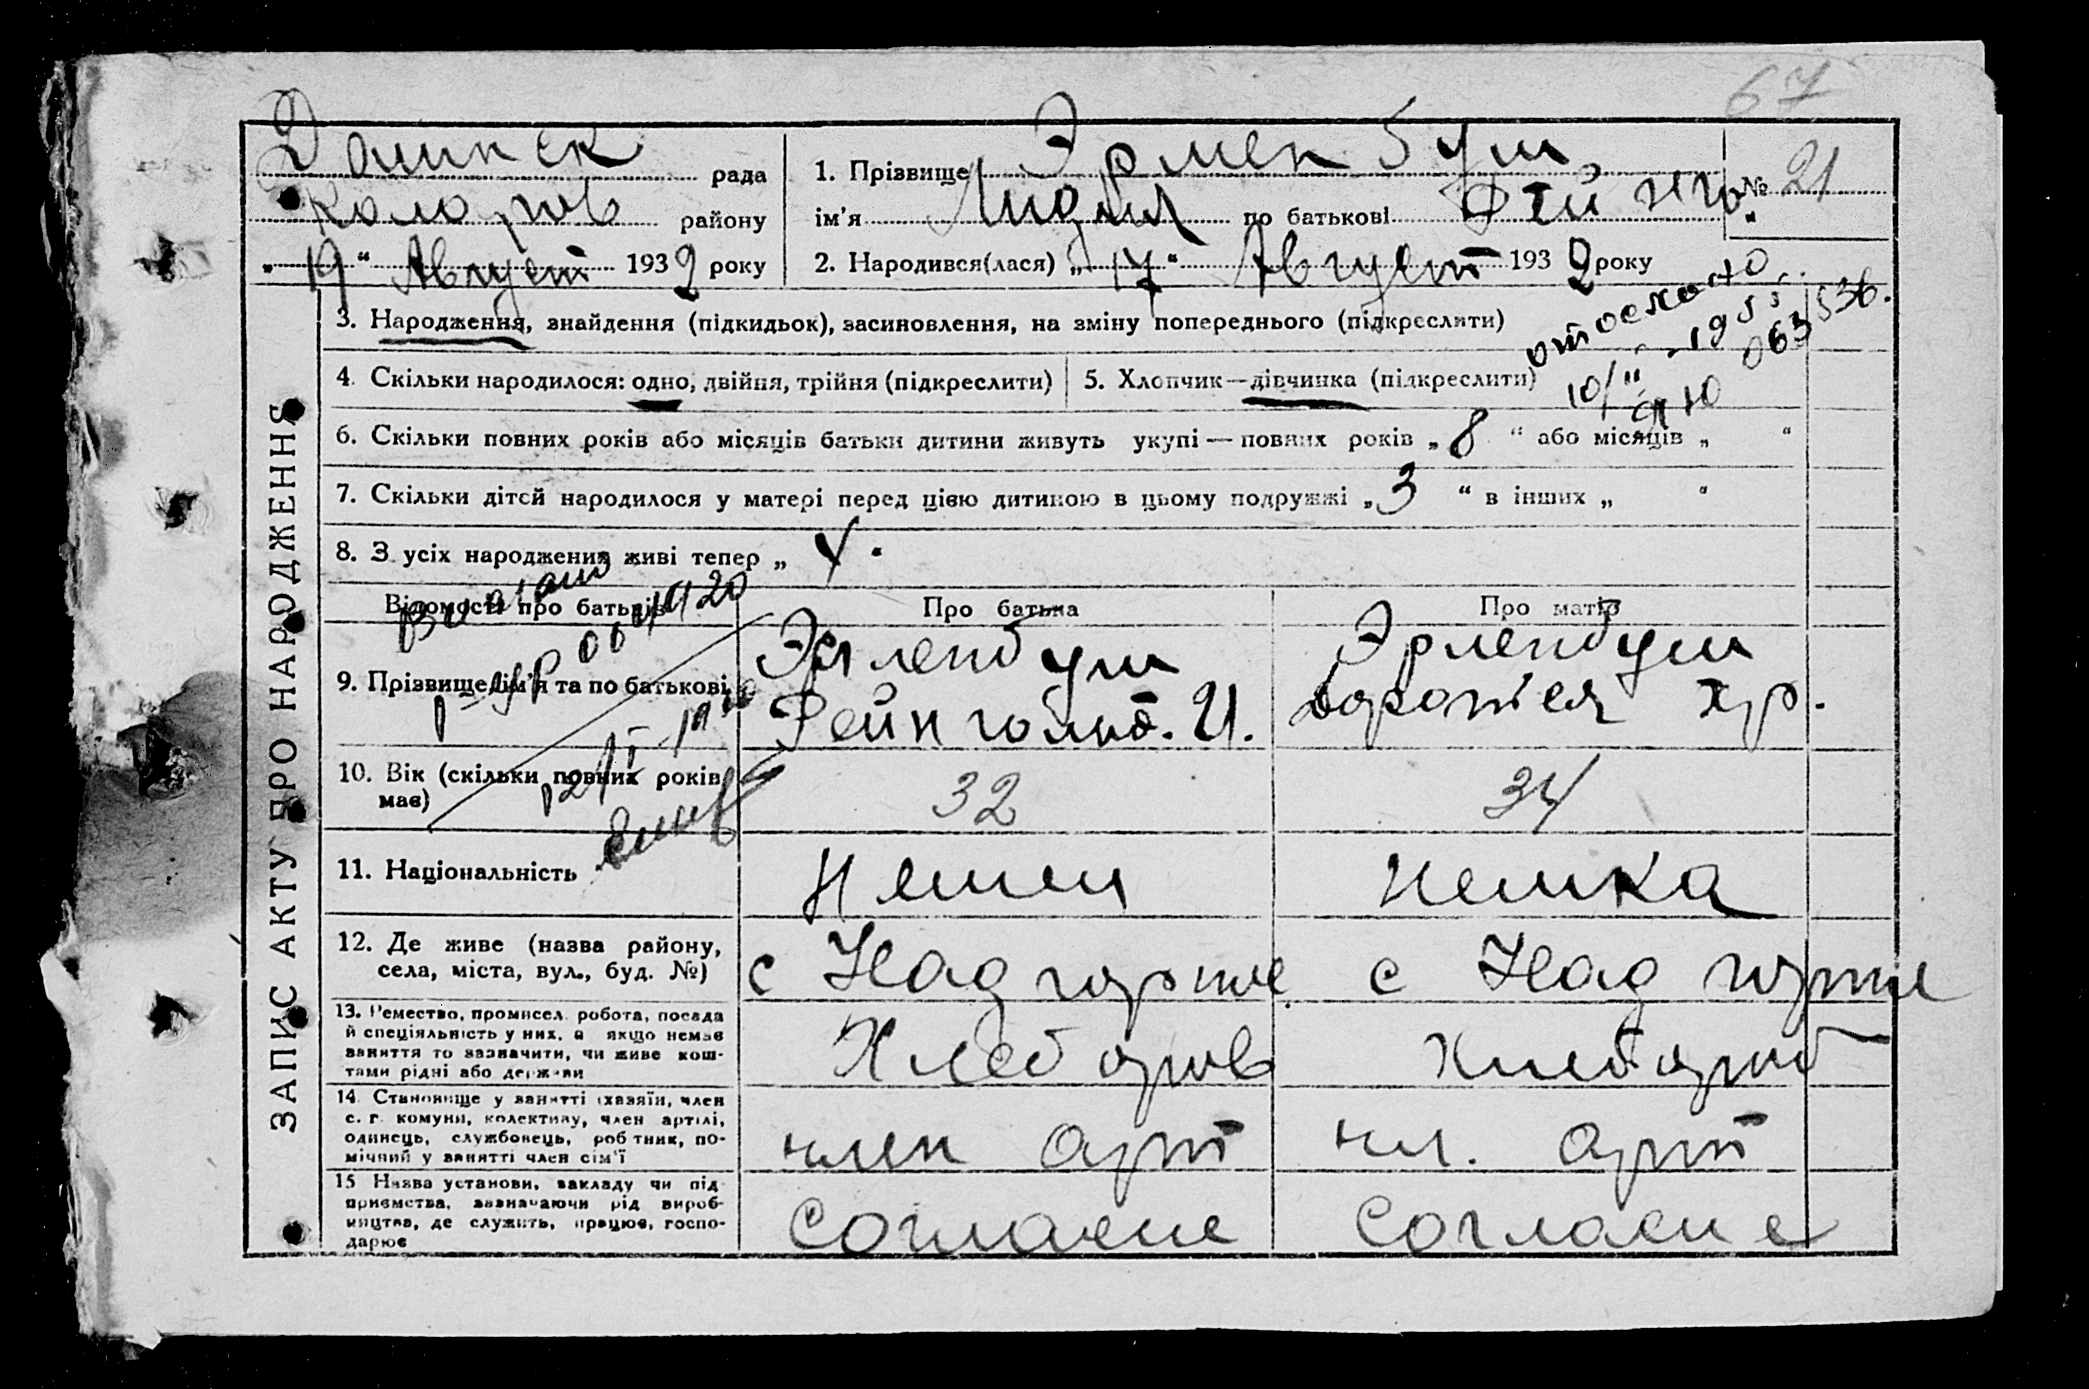 67
Долинск рада
Коларов районy
„ 19 “ Август 1932 року
1. Прізвище Эрленбуш
№ 21
ім’я Лидия по батькові Рейнго
2. Народився(лася) „ 17 “ Август 1932 року
3. Народження, знайдення (підкидьок), засиновлення, на зміну попереднього (підкреслити)
4. Скільки народилося: одно, двійня, трійня (підкреслити)
5. Хлопчик—дівчинка (підкреслити)
6. Скільки повних років або місяців батьки дитини живуть укупі — повних років „ 8 “ або місяців „ “
7. Скільки дітей народилося у матері перед цією дитиною в цьому подружжі „ 3 “ в інших „ “
8. З усіх народжених живі тепер „ 4.
ЗАПИС АКТУ ПРО НАРОДЖЕННЯ
Відомості про батьків
Про батька
Про матір
9. Прізвище, ім’я та по батькові
Эрленбуш
Рейнгольд. И.
Эрленбуш
Доротея Хр.
10. Вік (скільки повних років
має)
32
34
11. Національність
Немец
Немка
12. Де живе (назва району,
села, міста, вул., буд. №)
с Надгорное
с Надгорное
13. Ремество, промисел, робота, посада
й спеціяльність у них, а якщо немає
заняття то зазначити, чи живе кош-
тами рідні або держави
Хлебороб
Хлебороб
14. Становище у занятті (хазяїн, член
с. г. комуни, колективу, член артілі,
одинець, службовець, робтник, по-
мічний у занятті член сім’ї
член арт
чл. арт
15 Назва установи, закладу чи під-
приємства, зазначаючи рід вироб-
ництва, де служить, працює, госпо-
дарює
Согласие
Согласие